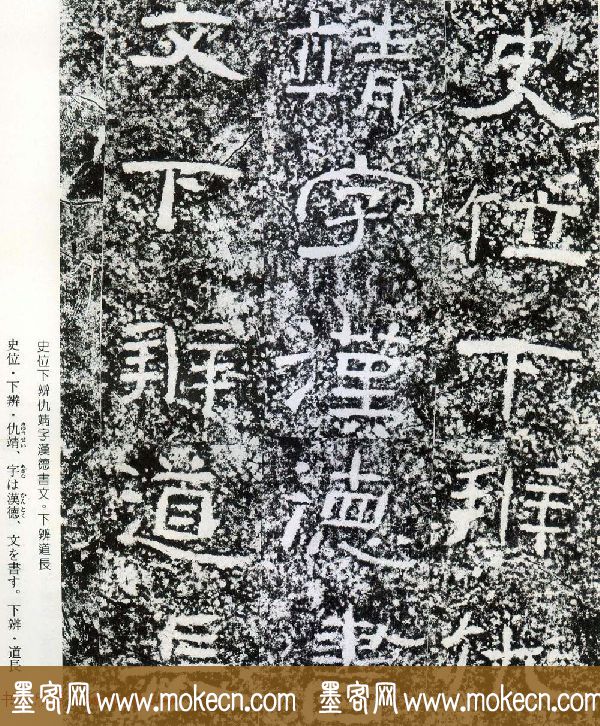 史位下辨仇
靖字漢德書
文下辨道長
史位下辨仇靖字漢德書文。下辨道長
史位・下辨・仇靖、字は漢德、文を書す。下辨・道長
墨客网 www.mokecn.com 墨客网 www.mokecn.com